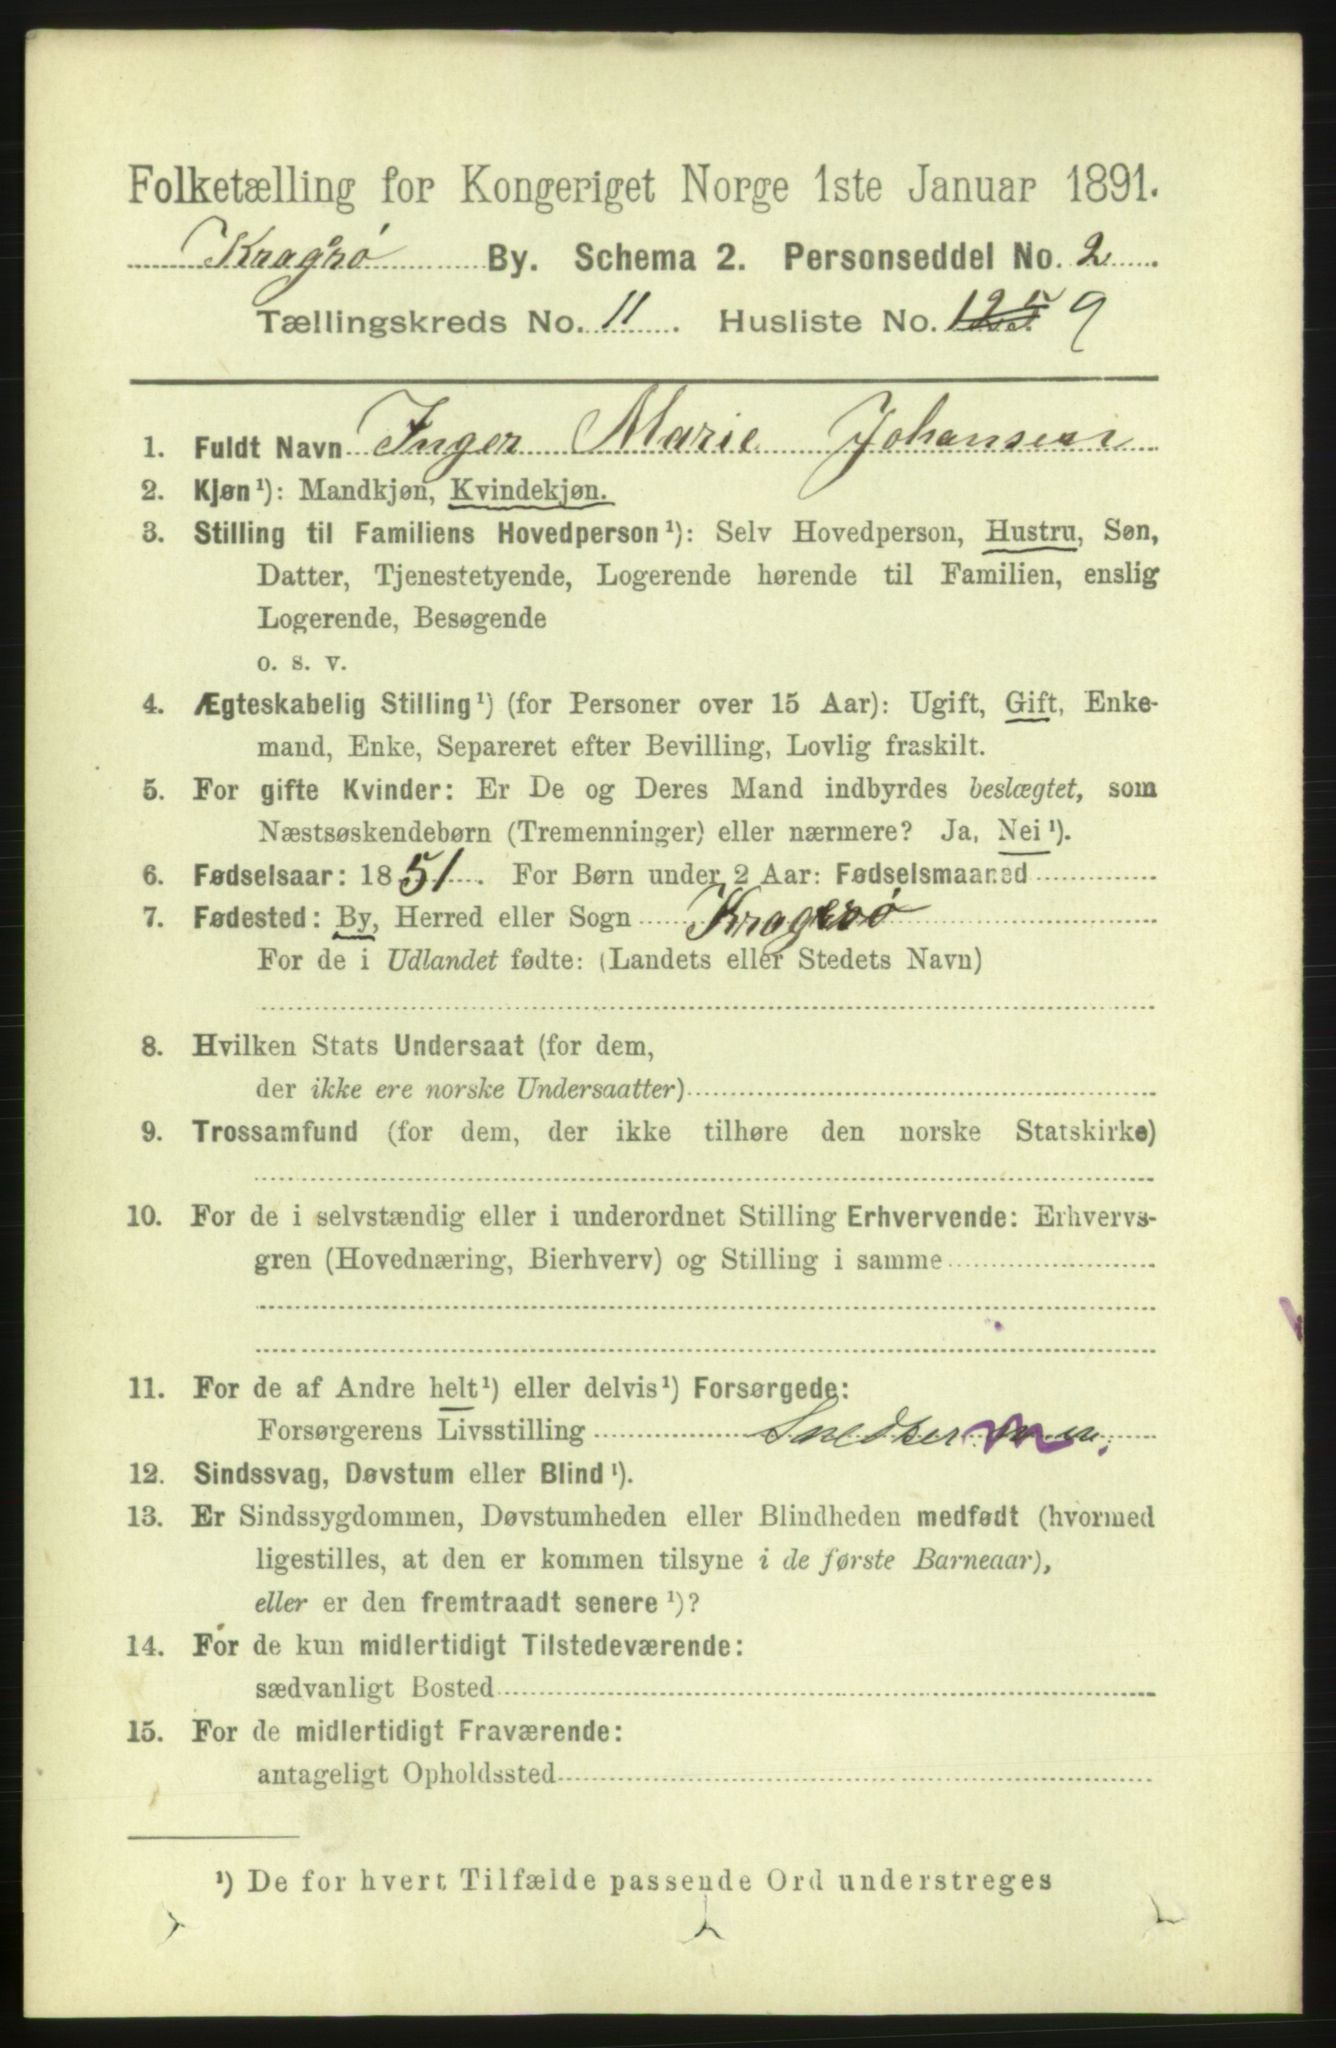 Folketælling for Kongeriget Norge 1ste Januar 1891.
Kragerø By. Schema 2. Personseddel No. 2
Tællingskreds No. 11. Husliste No. 125 9
1. Fuldt Navn Inger Marie Johansen
2. Kjøn¹): Mandkjøn, Kvindekjøn.
3. Stilling til Familiens Hovedperson¹): Selv Hovedperson, Hustru, Søn,
Datter, Tjenestetyende, Logerende hørende til Familien, enslig
Logerende, Besøgende
o. s. v.
4. Ægteskabelig Stilling¹) (for Personer over 15 Aar): Ugift, Gift, Enke-
mand, Enke, Separeret efter Bevilling, Lovlig fraskilt.
5. For gifte Kvinder: Er De og Deres Mand indbyrdes beslægtet, som
Næstsøskendebørn (Tremenninger) eller nærmere? Ja, Nei¹).
6. Fødselsaar: 1851. For Børn under 2 Aar: Fødselsmaaned
7. Fødested: By, Herred eller Sogn Kragerø
For de i Udlandet fødte: (Landets eller Stedets Navn)
8. Hvilken Stats Undersaat (for dem,
der ikke ere norske Undersaatter)
9. Trossamfund (for dem, der ikke tilhøre den norske Statskirke)
10. For de i selvstændig eller i underordnet Stilling Erhvervende: Erhvervs-
gren (Hovednæring, Bierhverv) og Stilling i samme
11. For de af Andre helt¹) eller delvis¹) Forsørgede:
Forsørgerens Livsstilling Snedker
12. Sindssvag, Døvstum eller Blind¹).
13. Er Sindssygdommen, Døvstumheden eller Blindheden medfødt (hvormed
ligestilles, at den er kommen tilsyne i de første Barneaar),
eller er den fremtraadt senere¹)?
14. For de kun midlertidigt Tilstedeværende:
sædvanligt Bosted
15. For de midlertidigt Fraværende:
antageligt Opholdssted
¹) De for hvert Tilfælde passende Ord understreges